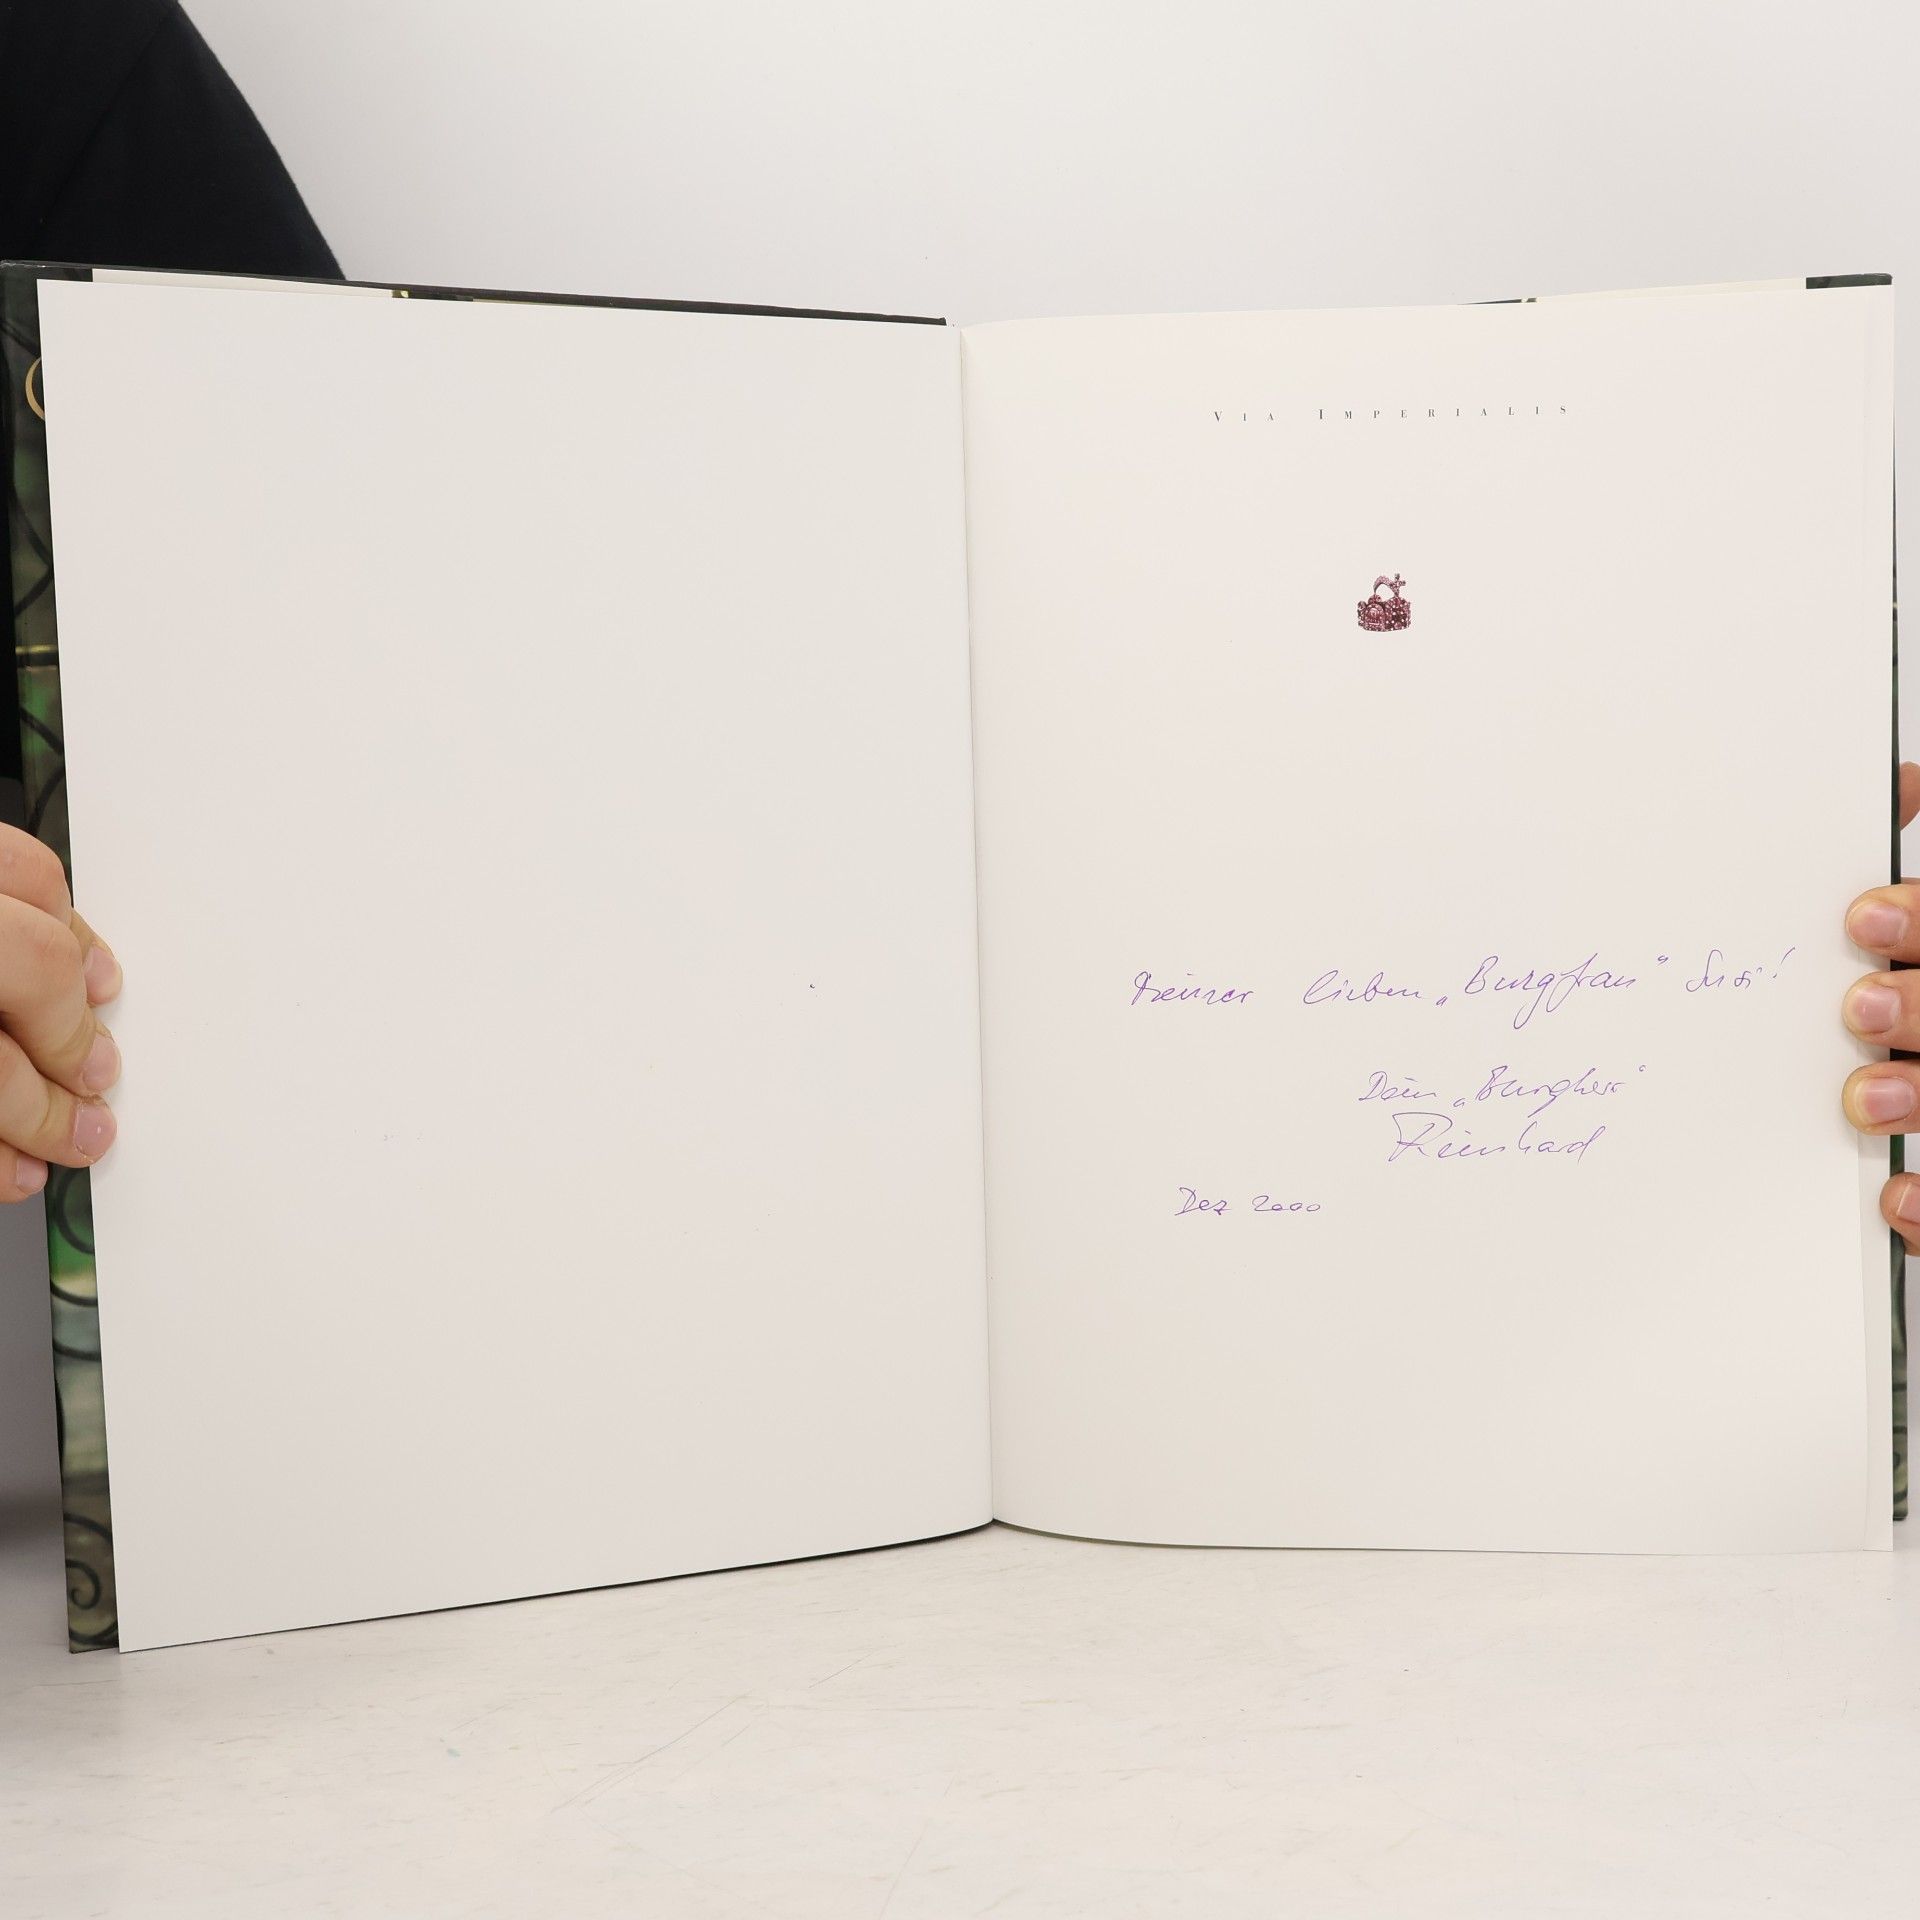 VIA IMPERIALIS
Meiner lieben „Burgfrau" Susi!
Dein „Burgherr"
Reinhard
Dez 2000